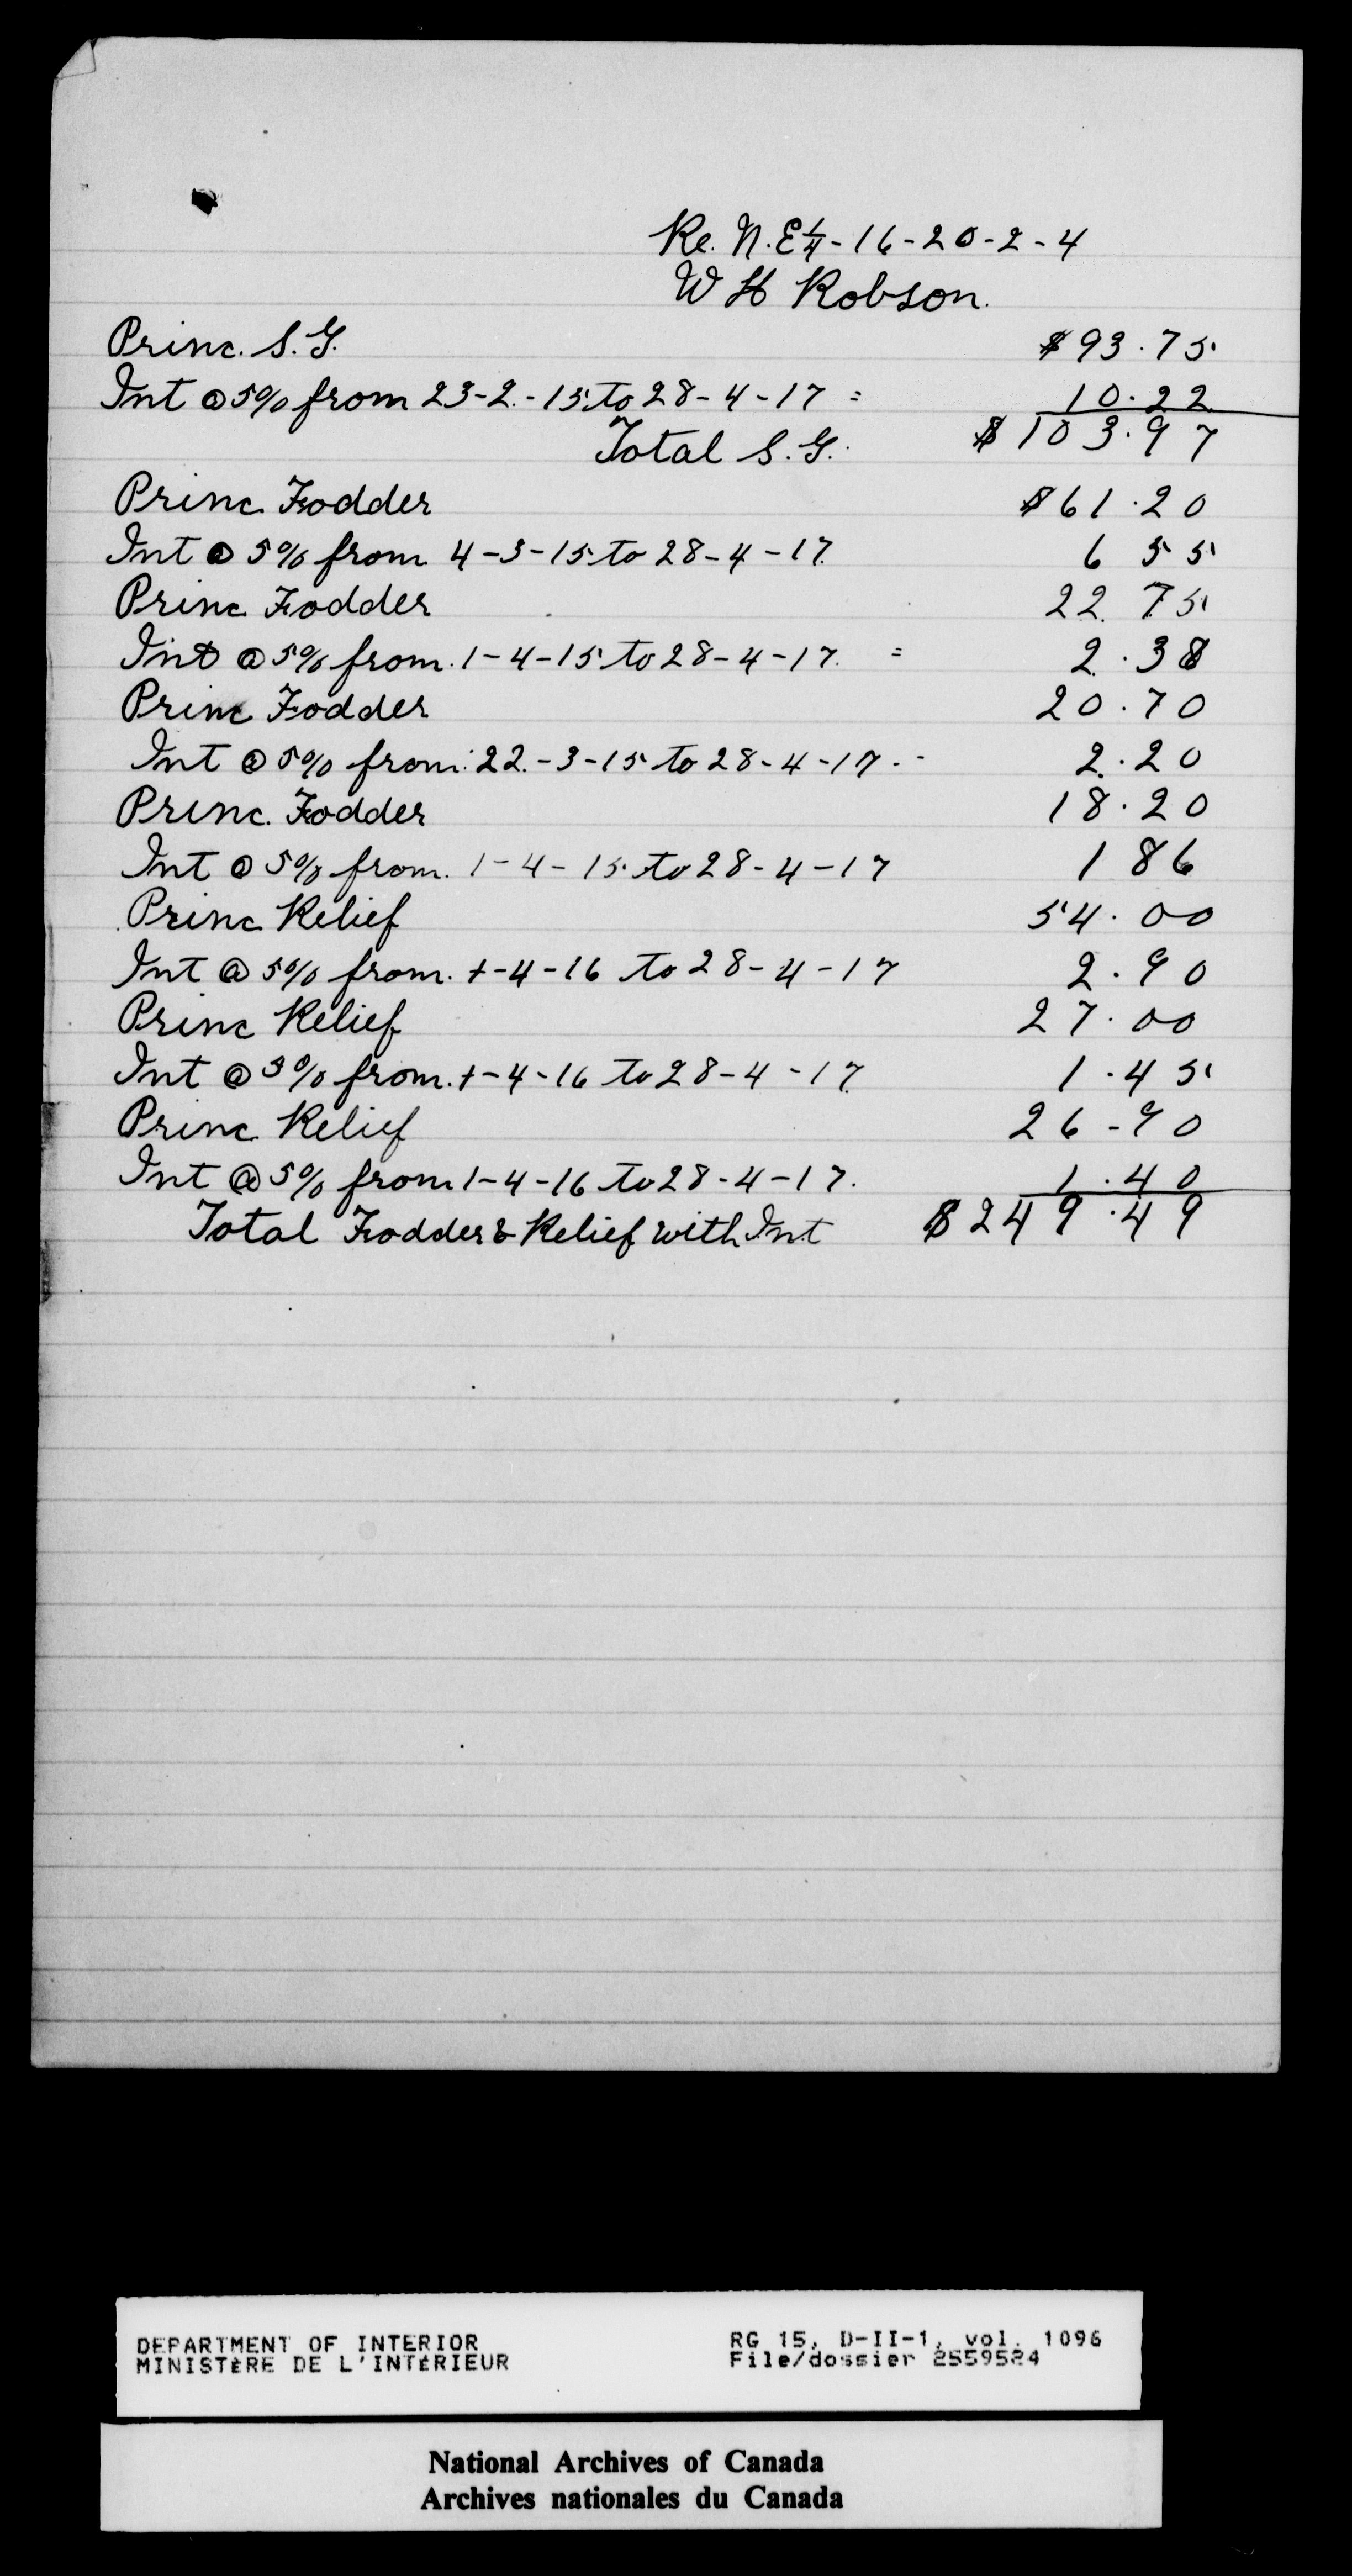 Re. N.E¼-16-20-2-4
W H Robson.
Princ. S.G. $93.75
Int @ 5% from 23-2-15 to 28-4-17 = 10.22
Total S.G. $103.97
Princ Fodder $61.20
Int @ 5% from 4-3-15 to 28-4-17. 6 55
Princ Fodder 22.75
Int @ 5% from. 1-4-15 to 28-4-17. = 2.38
Princ Fodder 20.70
Int @ 5% from: 22-3-15 to 28-4-17.- 2.20
Princ. Fodder 18.20
Int @ 5% from. 1-4-15 to 28-4-17 1 86
Princ Relief 54.00
Int @ 5% from. 1-4-16 to 28-4-17 2.90
Princ Relief 27.00
Int @ 5% from. 1-4-16 to 28-4-17. 1.45
Princ Relief 26-90
Int @ 5% from 1-4-16 to 28-4-17. 1.40
Total Fodder & Relief with Int $249.49
DEPARTMENT OF INTERIOR RG 15, D-II-1, vol. 1096
MINISTÈRE DE L'INTÉRIEUR File/dossier 2559524
National Archives of Canada
Archives nationales du Canada